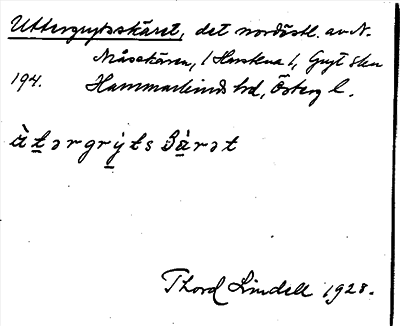 Uttergrytsskäret, det nordöstl. av N.
Måsskären, (Harstena), Gryt skn
194. Hammarkinds hd, Österg l.
ùtərgrýts ʃä̀rət
Thord Lindell 1928.